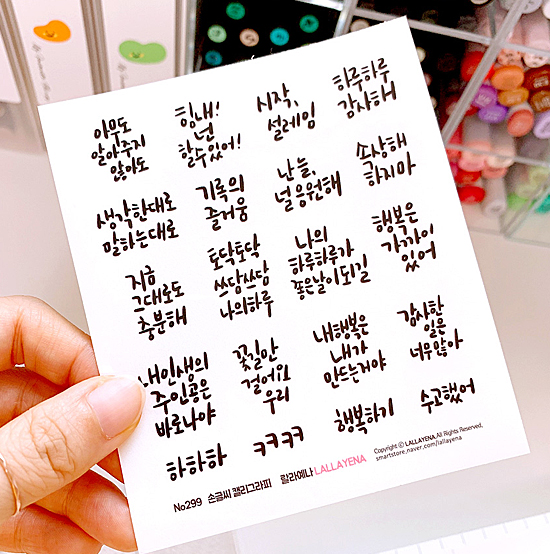 아무도
알아주지
않아도
힘내!
넌
할수있어!
시작,
설레임
하루하루
감사해
생각한대로
말하는대로
기록의
즐거움
난 늘,
널 응원해
속상해
하지마
지금
그대로도
충분해
토닥토닥
쓰담쓰담
나의하루
나의
하루하루가
좋은날이 되길
행복은
가까이
있어
내 인생의
주인공은
바로나야
꽃길만
걸어요
우리
내행복은
내가
만드는거야
감사한
일은
너무많아
하하하
ㅋㅋㅋㅋ
행복하기
수고했어
No299 손글씨 캘리그라피 랄라예나 LALLAYENA
Copyright ⓒ LALLAYENA.All Rights Reserved.
smartstore.naver.com/lallayena